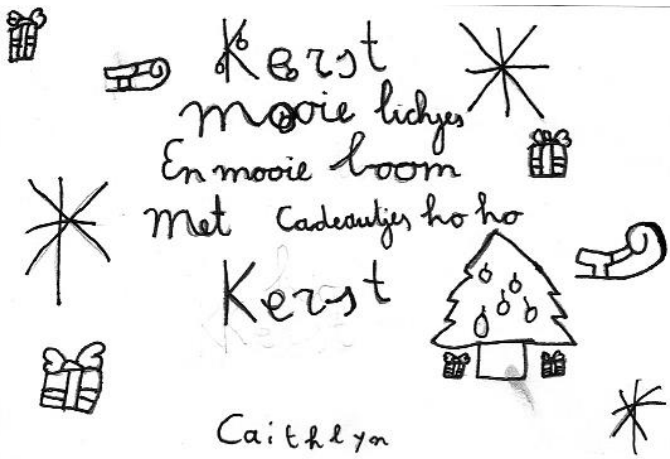 Kerst
mooie lichjes
En mooie boom
Met cadeautjes ho ho
Kerst
Caithlyn